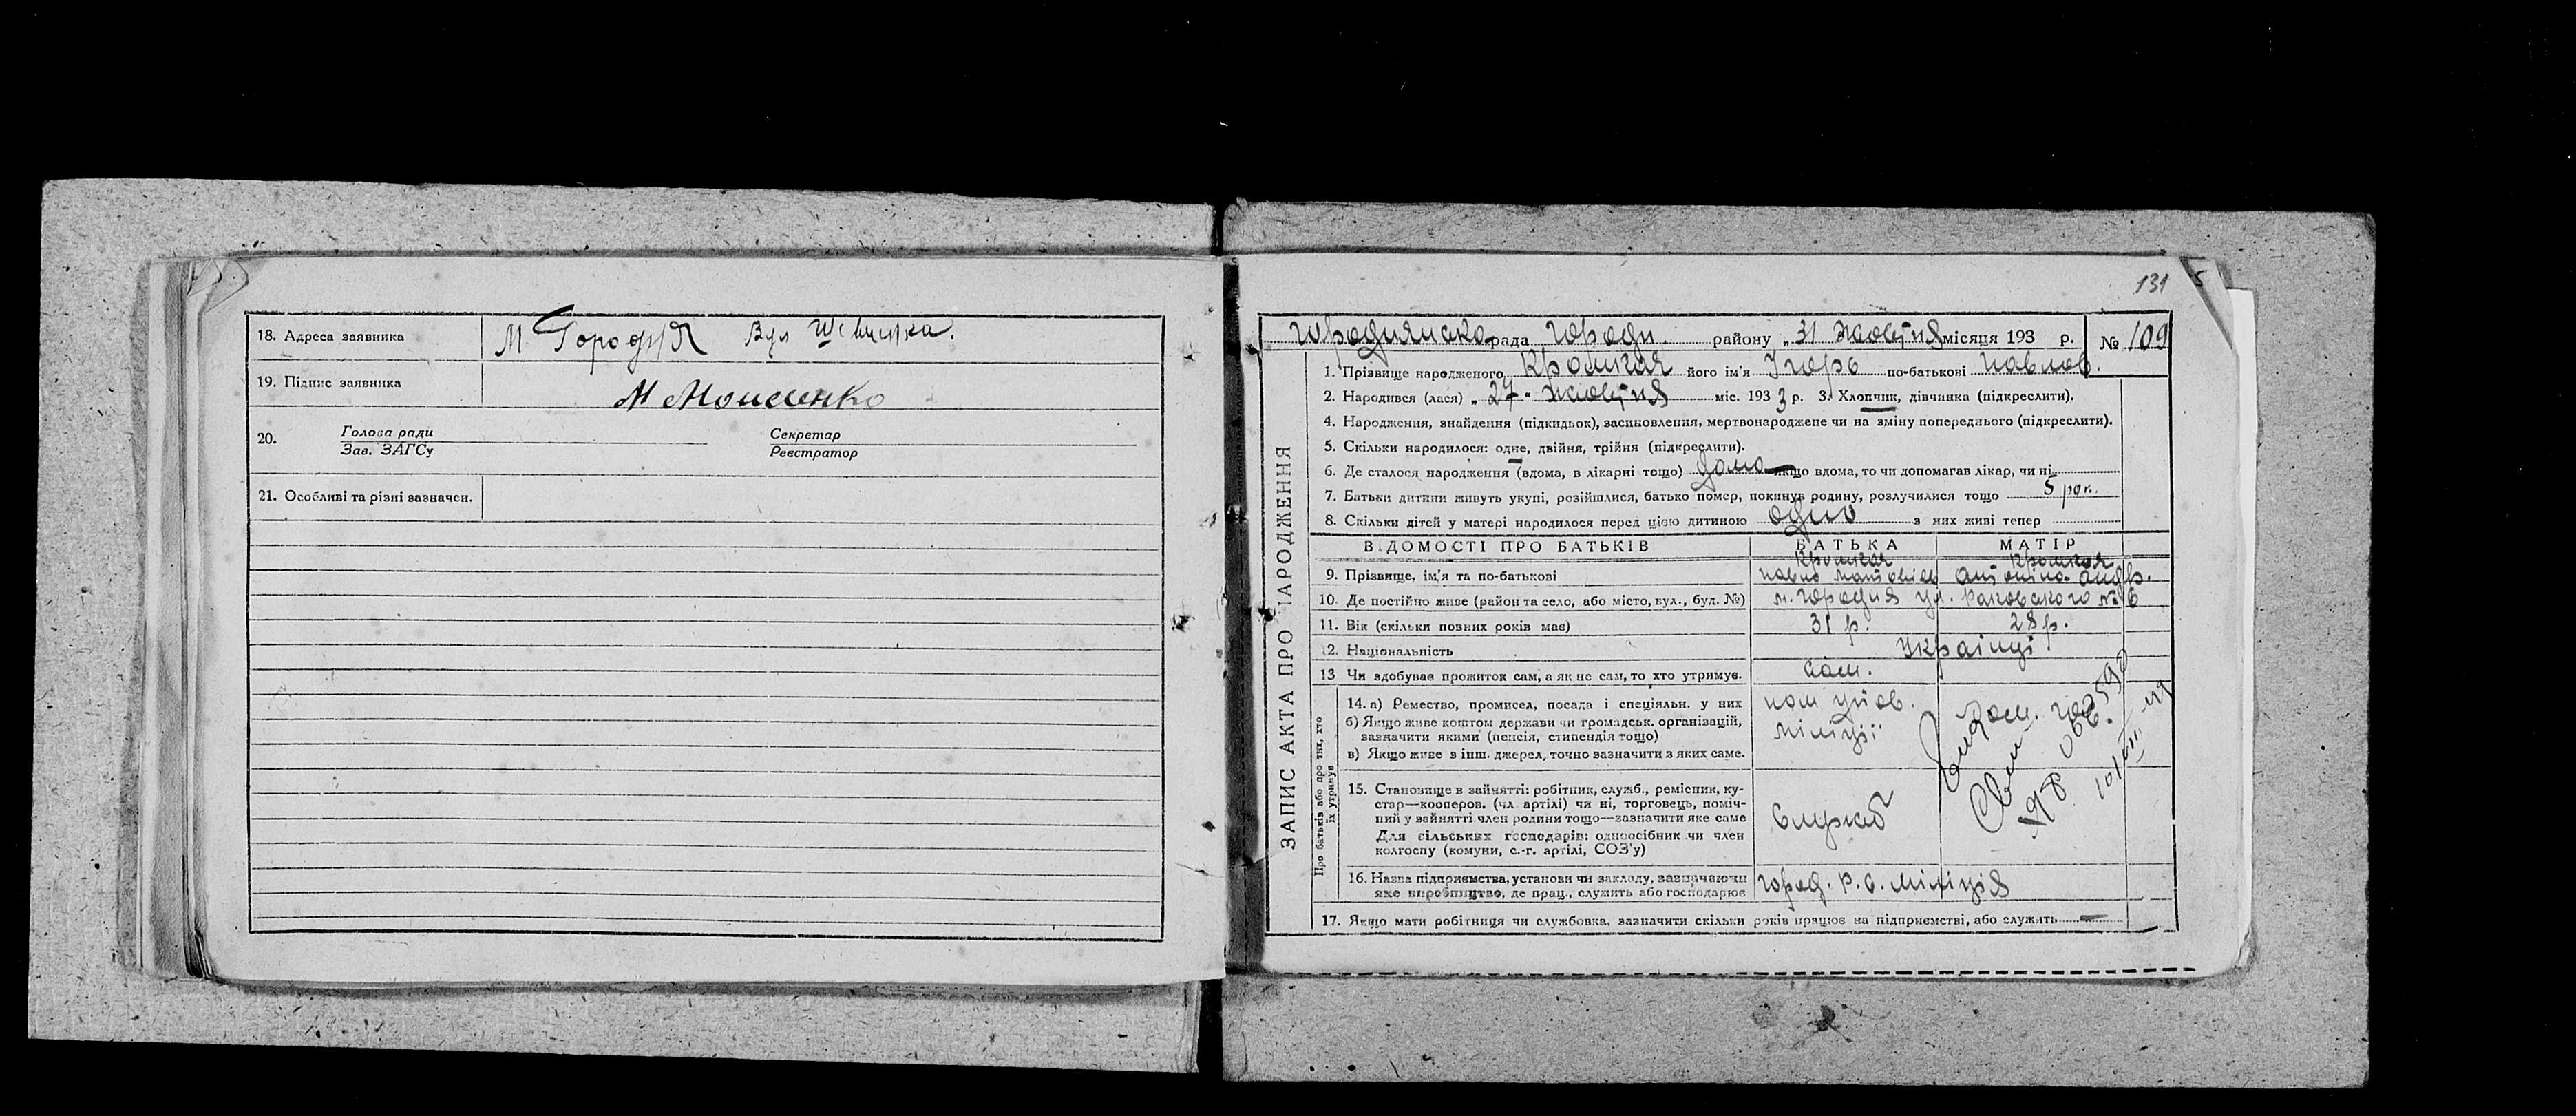 18. Адреса заявника М Городня Вул Шевченка.
19. Підпис заявника М Моисеенко
20. Голова ради Секретар
Зав. ЗАГСу Реєстратор
21. Особливі та різні зазначен.
131
Городнянска рада Городн. району „31 Жовтня місяця 193 р. № 109
ЗАПИС АКТА ПРО НАРОДЖЕННЯ
1. Прізвище народженого його ім'я Ігорь по-батькові Павлов.
2. Народився (лася) „27" Жовтня міс. 1933 р. 3. Хлопчик, дівчинка (підкреслити).
4. Народження, знайдення (підкидьок), засиновлення, мертвонароджене чи на зміну попереднього (підкреслити).
5. Скільки народилося: одне, двійня, трійня (підкреслити).
6. Де сталося народження (вдома, в лікарні тощо) дома якщо вдома, то чи допомагав лікар, чи ні
7. Батьки дитини живуть укупі, розійшлися, батько помер, покинув родину, розлучилися тощо 5 рок.
8. Скільки дітей у матері народилося перед цією дитиною одно з них живі тепер
ВІДОМОСТІ ПРО БАТЬКІВ БАТЬКА МАТІР
9. Прізвище, ім'я та по-батькові Павло Антоніна Андр.
10. Де постійно живе (район та село, або місто, вул., буд. №) м. Городня ул. Раковского № 6
11. Вік (скільки повних років має) 31 р. 28 р.
12. Національність Українці
13 Чи здобуває прожиток сам, а як не сам, то хто утримує. сам.
Про батьків або про тих, хто
їх утримує
14. а) Ремество, промисел, посада і спеціяльн. у них
б) Якщо живе коштом держави чи громадськ. організацій,
зазначити якими (пенсія, стипендія тощо) міліції
в) Якщо живе з інш. джерел, точно зазначити з яких саме.
15. Становище в зайнятті: робітник, служб., ремісник, ку-
стар—кооперов. (чл. артілі) чи ні, торговець, поміч-
ний у зайнятті член родини тощо—зазначити яке саме служб
Для сільських господарів: одноосібник чи член
колгоспу (комуни, с.-г. артілі, СОЗ'у)
16. Назва підприємства, установи чи закладу, зазначаючи Город. Р. С. Міліція
яке виробництво, де прац., служить або господарює
17. Якщо мати робітниця чи службовка, зазначити скільки років працює на підприємстві, або служить —